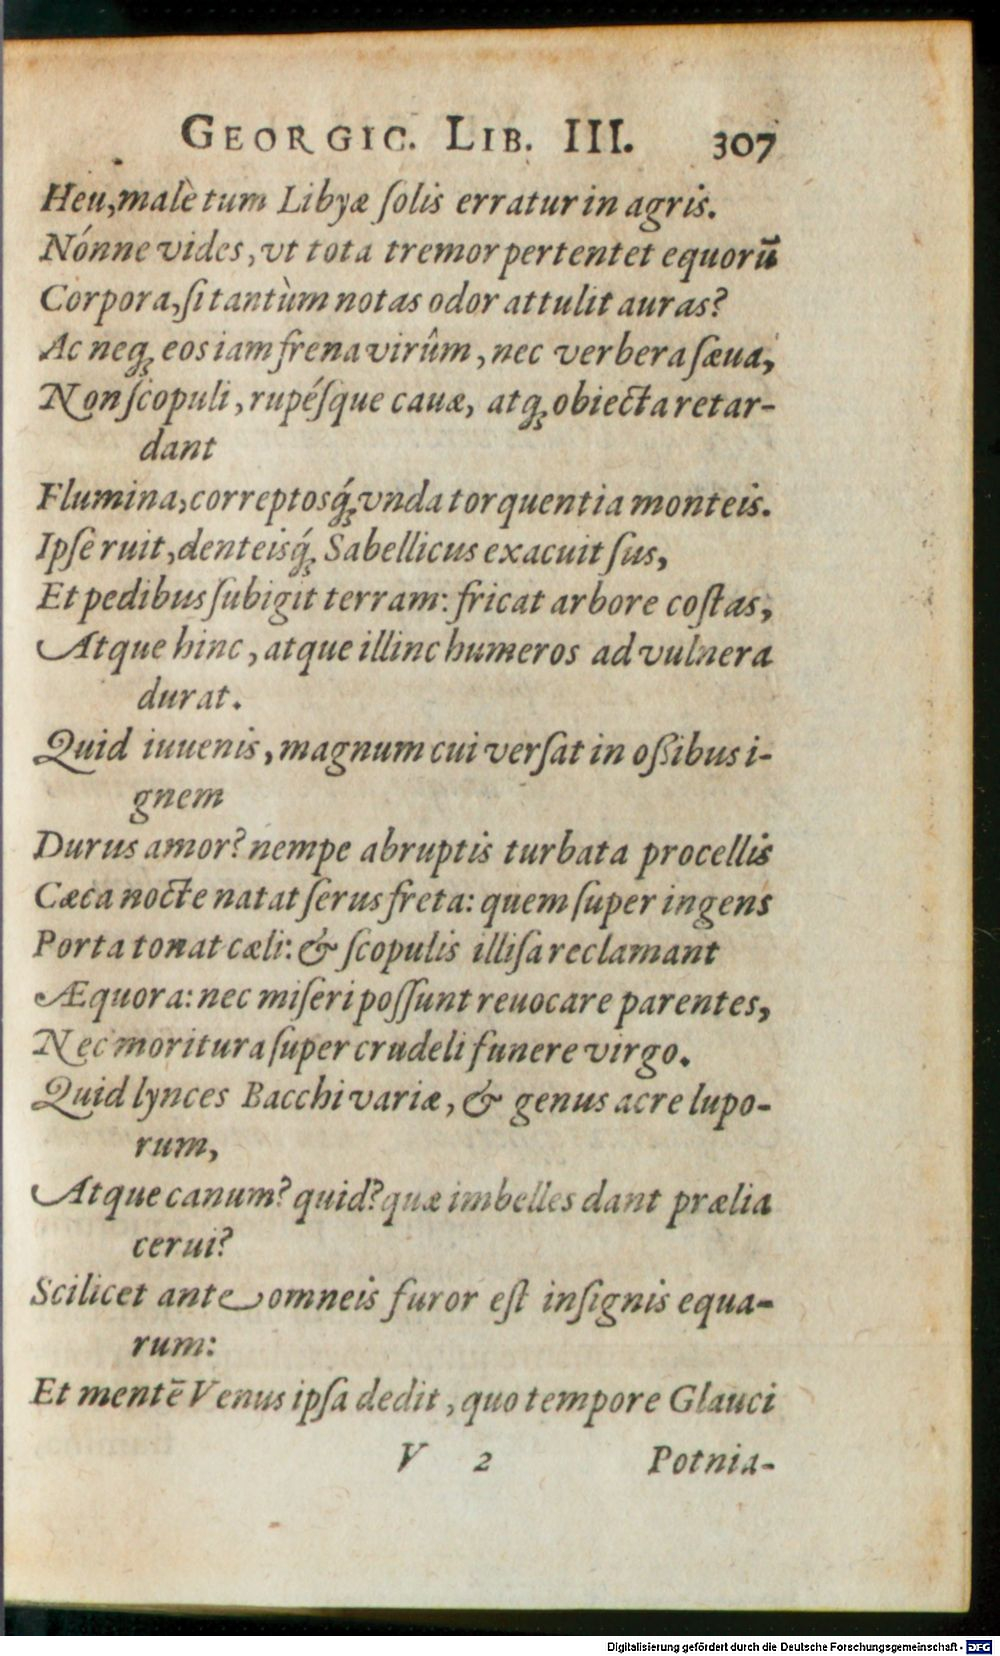 GEORGIC. LIB. III. 307
Heu, malè tum Libyæ ſolis erratur in agris.
Nónne vides, vt tota tremor pertentet equorū
Corpora, ſi tantùm notas odor attulit auras?
Ac neq; eos iam frena virûm, nec verbera ſæua,
Non ſcopuli, rupéſque cauæ, atq; obiecta retar-
dant
Flumina, correptosq́; vnda torquentia monteis.
Ipſe ruit, denteisq́; Sabellicus exacuit ſus,
Et pedibus ſubigit terram: fricat arbore coſtas,
Atque hinc, atque illinc humeros ad vulnera
durat.
Quid iuuenis, magnum cui verſat in oſsibus i-
gnem
Durus amor? nempe abruptis turbata procellis
Cæca nocte natat ſerus freta: quem ſuper ingens
Porta tonat cæli: & ſcopulis illiſa reclamant
Æquora: nec miſeri poſſunt reuocare parentes,
Nec moritura ſuper crudeli funere virgo.
Quid lynces Bacchi variæ, & genus acre lupo-
rum,
Atque canum? quid? quæ imbelles dant prælia
cerui?
Scilicet ante omneis furor eſt inſignis equa-
rum:
Et mentē Venus ipſa dedit, quo tempore Glauci
V 2 Potnia-
Digitalisierung gefördert durch die Deutsche Forschungsgemeinschaft - DFG